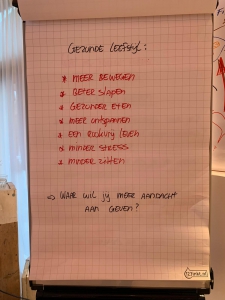 GEZONDE LEEFSTYL:
* MEER BEWEGEN
* BETER SLAPEN
* GEZONDER ETEN
* MEER ONTSPANNEN
* EEN ROOKVRY LEVEN
* MINDER STRESS
* MINDER ZITTEN
-> WAAR WIL JY MEER AANDACHT
AAN GEVEN?